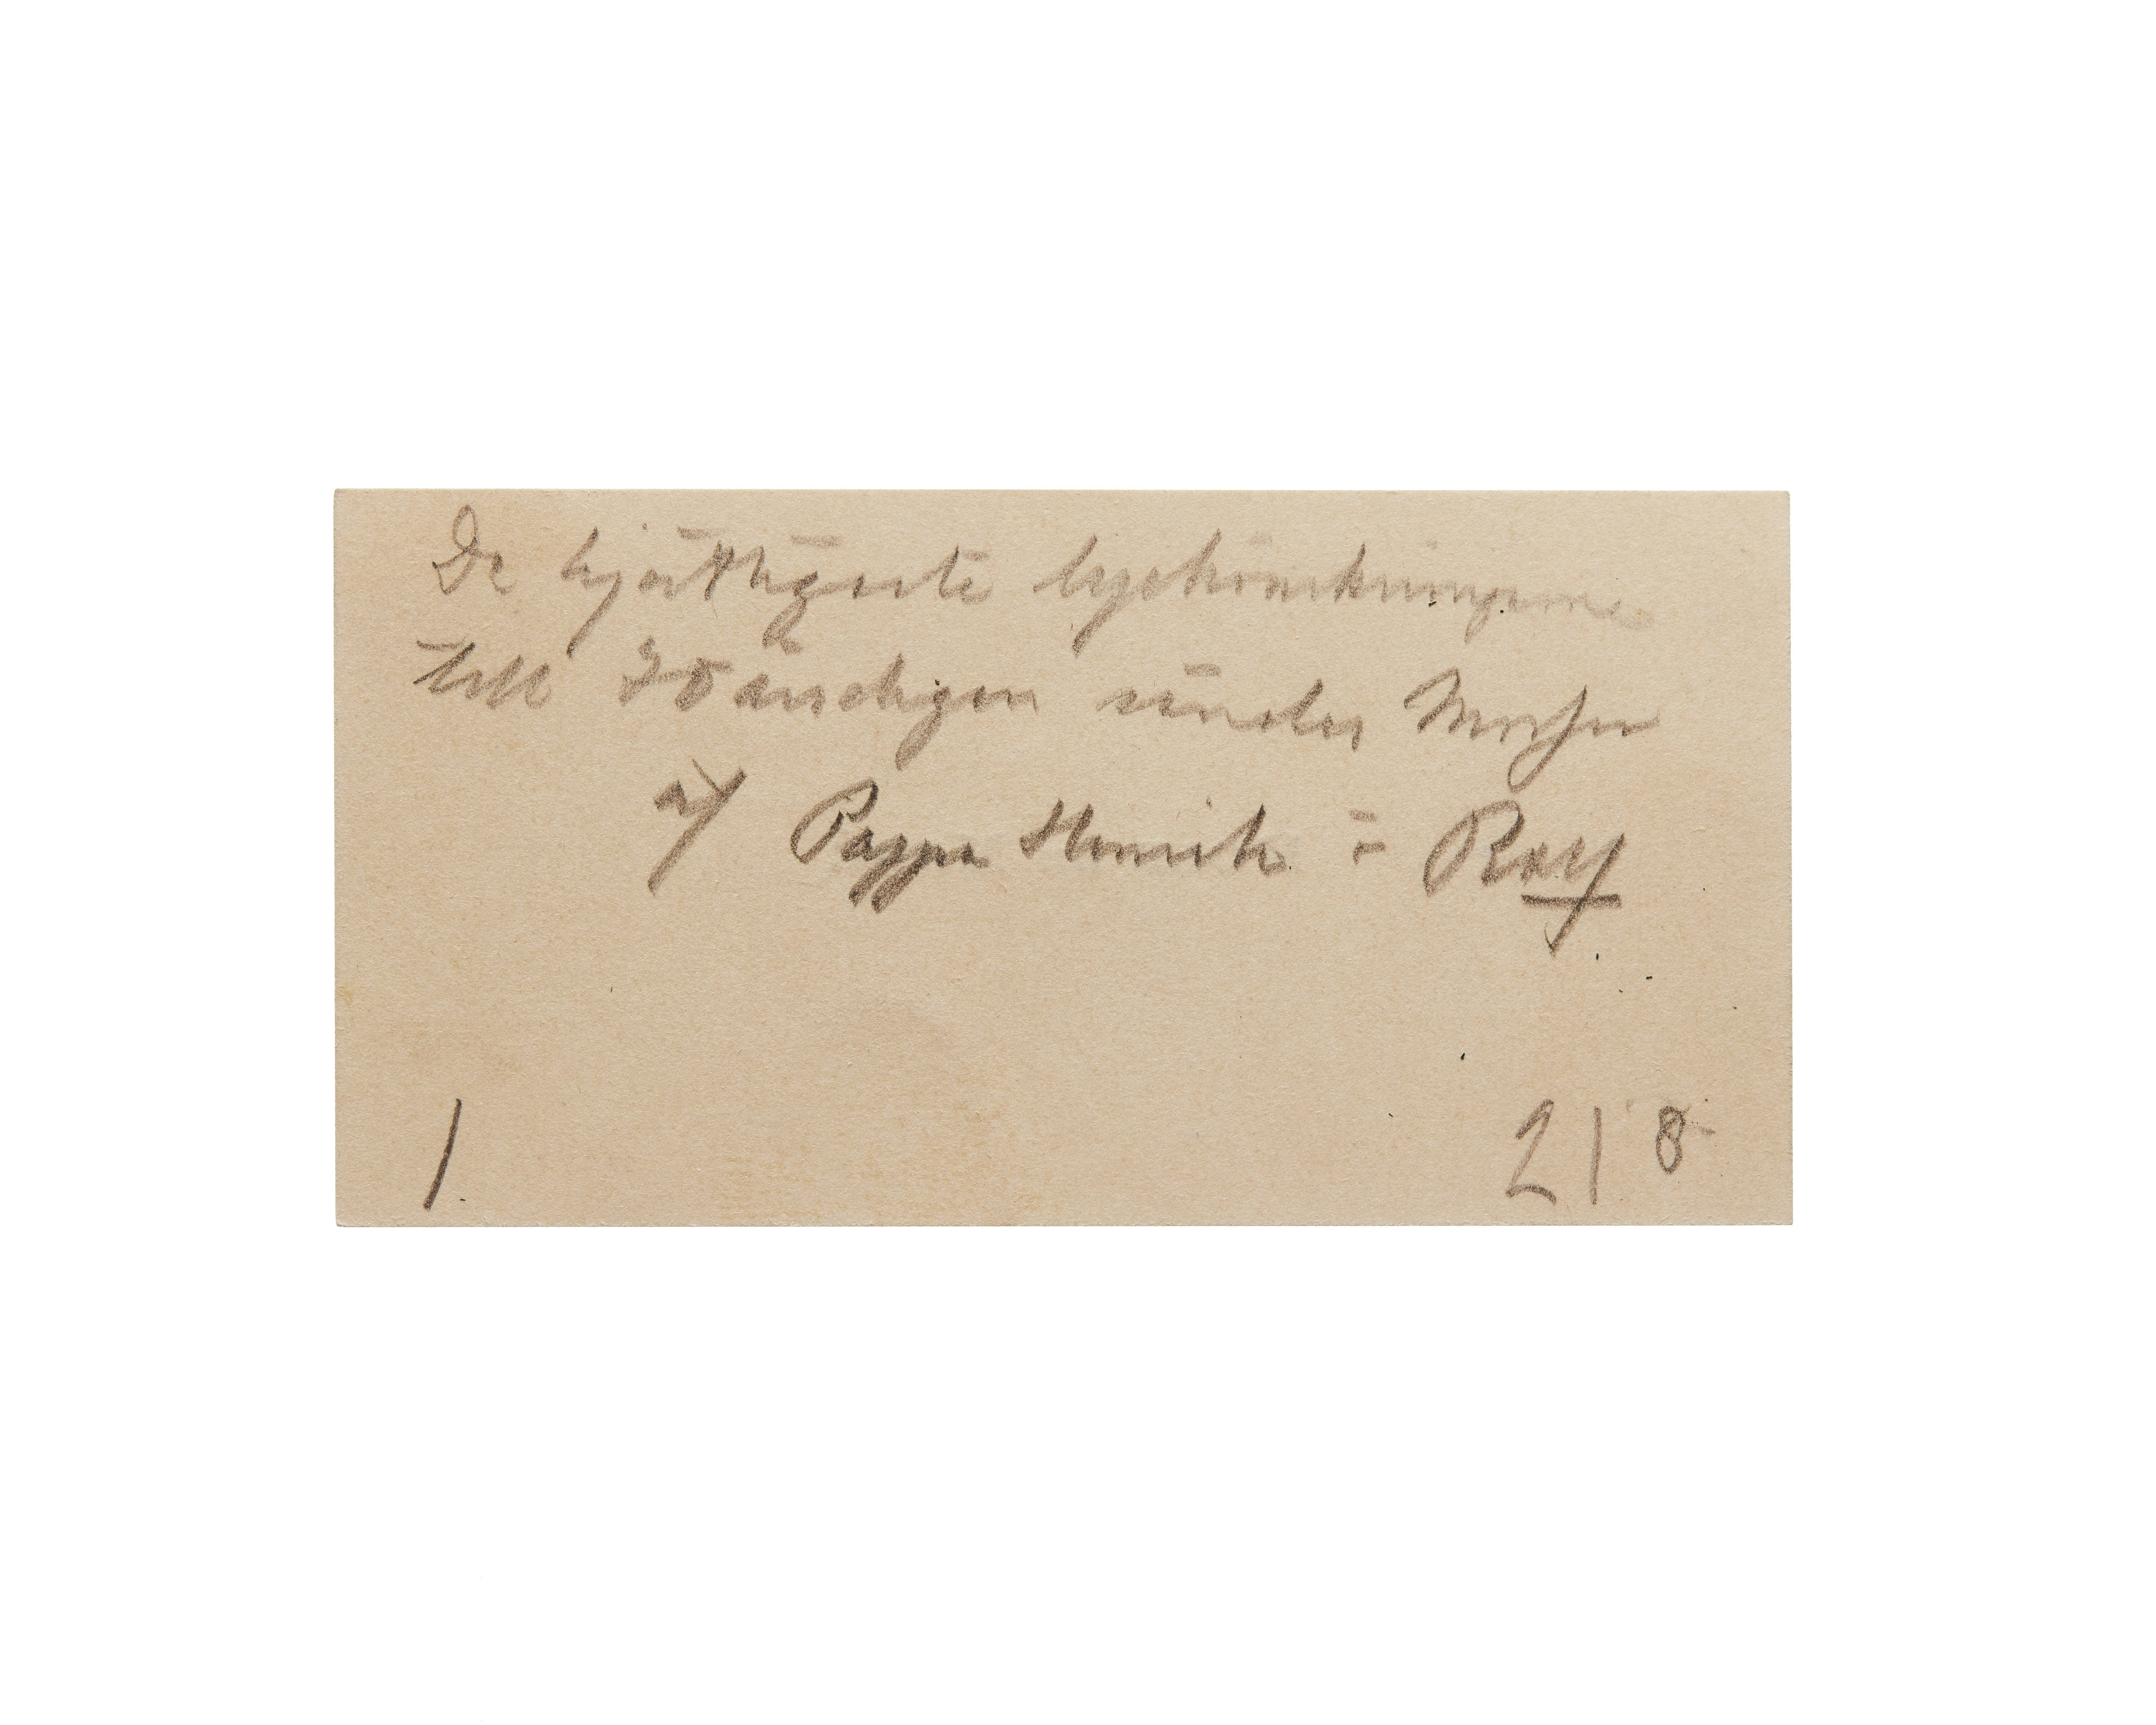 De hjärtligaste lyckönskningarne
till 70 årsdagen sänder Morfar
af Pappa Henrik o Rolf
1
21 8